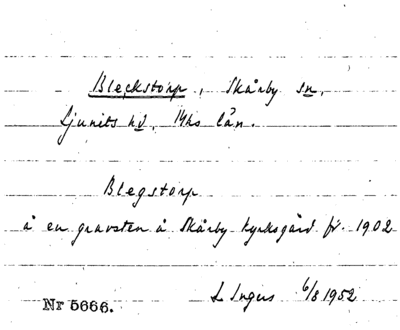 Bleckstorp, Skårby sn,
Ljunits hd, Mhs län.
Blegstorp
å en gravsten å Skårby kyrkogård fr. 1902
Nr 5666. L Ingers 6/8 1952